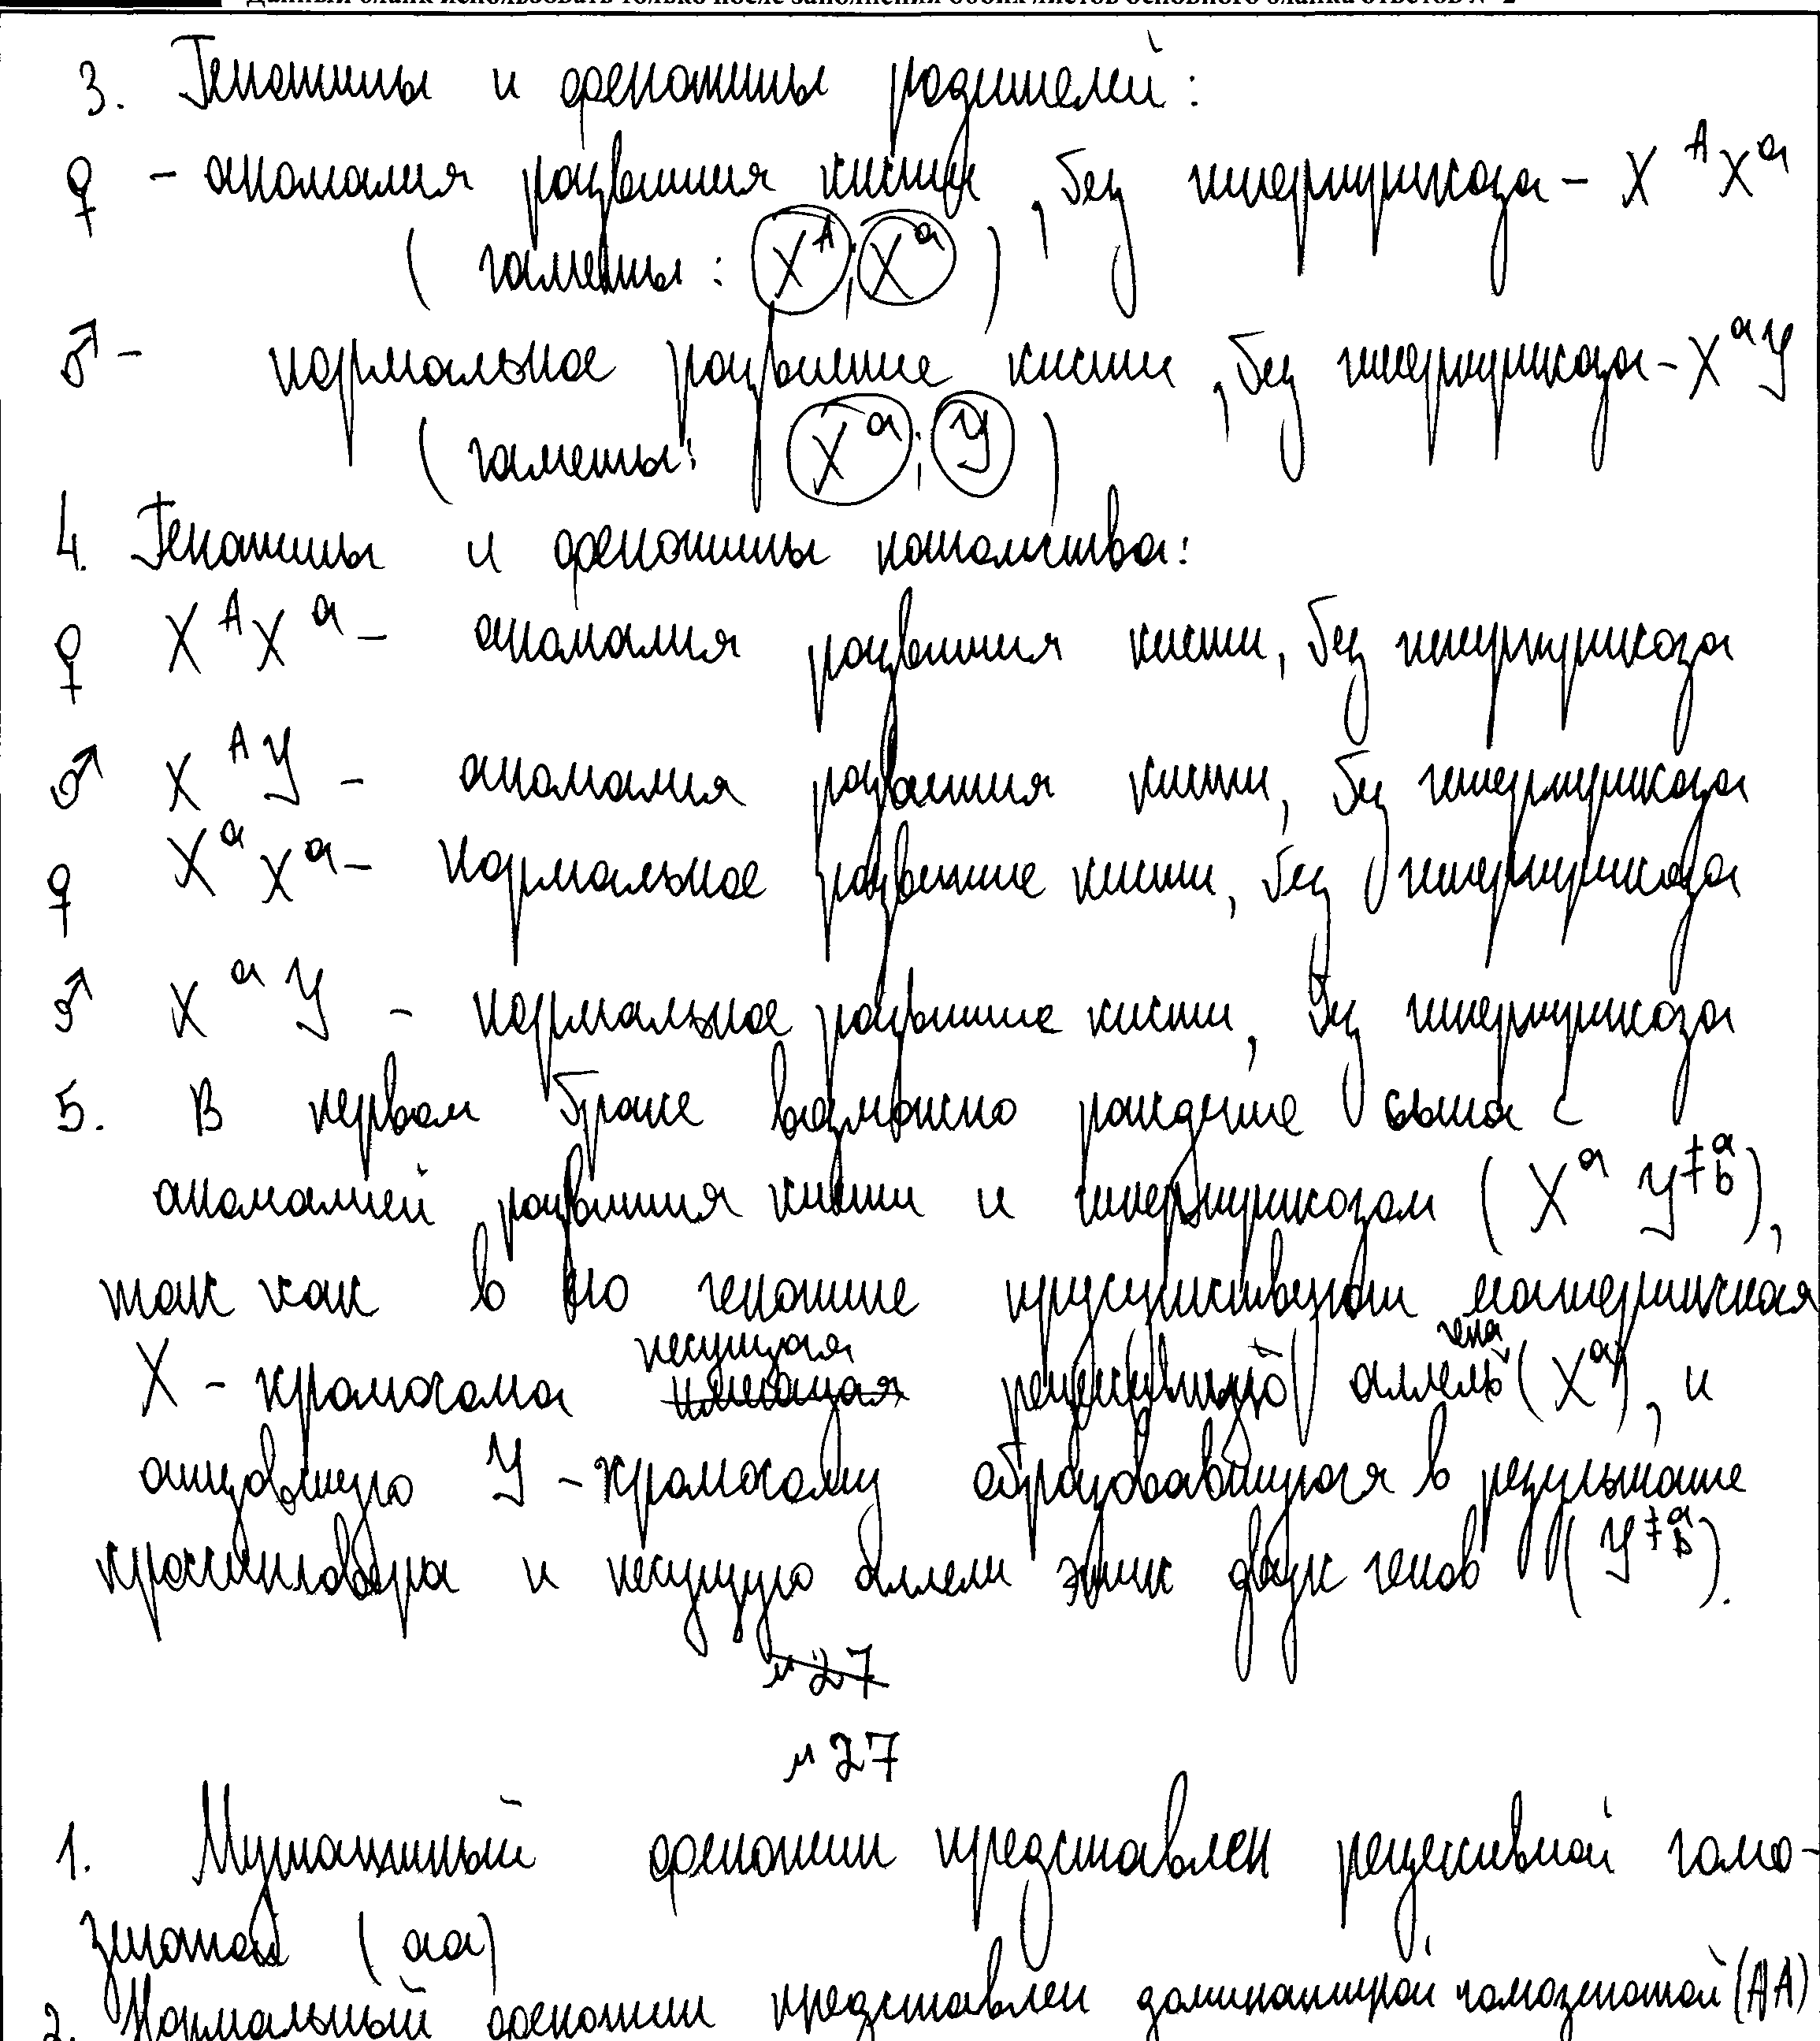 Данный бланк использовать только после заполнения обоих листов основного бланка ответов № 2
3. Генотипы и фенотипы родителей:
♀ - аномалия развития кисти, без гипертрихоза - X^A X^a
(гаметы: X^A; X^a)
♂ - нормальное развитие кисти, без гипертрихоза - X^a Y
(гаметы: X^a; Y)
4. Генотипы и фенотипы потомства:
♀ X^A X^a - аномалия развития кисти, без гипертрихоза
♂ X^A Y - аномалия развития кисти, без гипертрихоза
♀ X^a X^a - нормальное развитие кисти, без гипертрихоза
♂ X^a Y - нормальное развитие кисти, без гипертрихоза
5. В первом браке возможно рождение сына с
аномалией развития кисти и гипертрихозом (X^a Y^a b),
так как в его генотипе присутствуют материнская
X - хромосома несущая рецессивную аллель гена (X^a), и
отцовскую Y - хромосому образовавшуюся в результате
кроссинговера и несущую аллели этих двух генов (Y^a b).
№ 27
№ 27
1. Мутантный фенотип представлен рецессивной гомо-
зиготой (aa)
2. Нормальный фенотип представлен доминантной гомозиготой (AA)